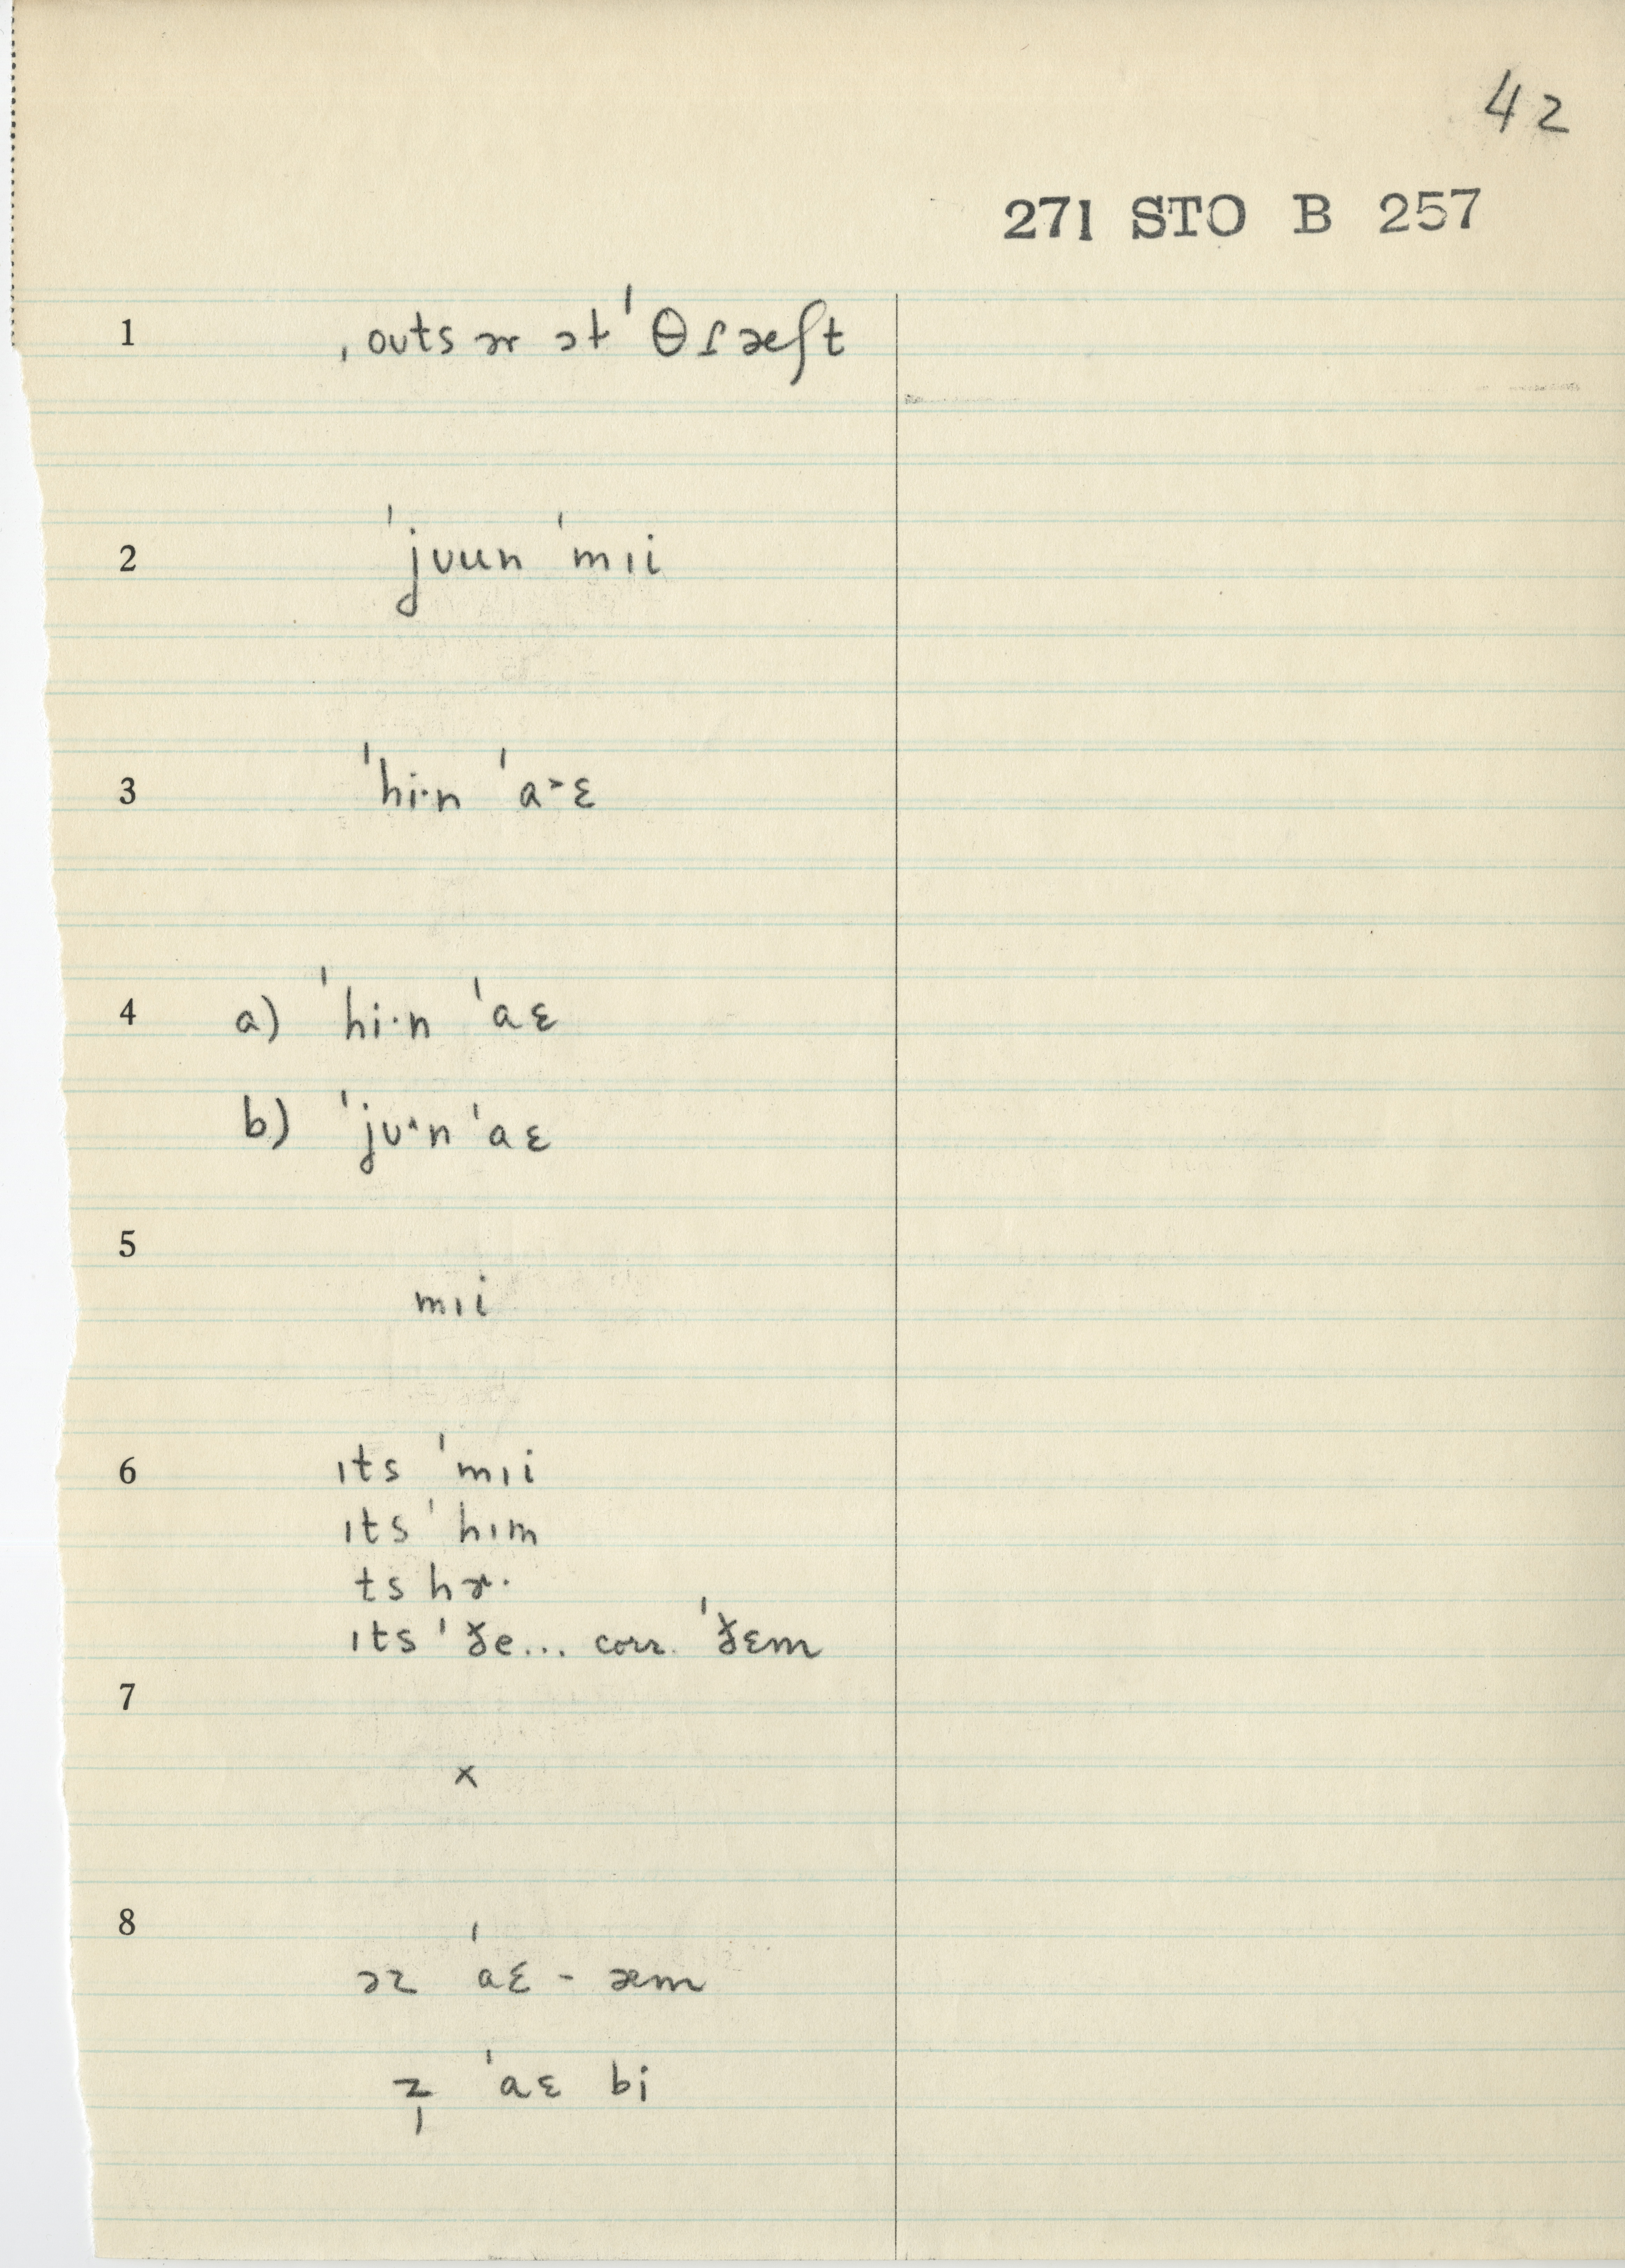 42
271 STO B 257
1 ˌouts ɚ ət ˈθɾæʃt
2 ˈjuun ˈmɪi
3 ˈhi·n ˈa˃ɛ
4 a) ˈhi·n ˈaɛ
b) ˈjʊ˄n ˈaɛ
5
mɪi
6 ɪts ˈmɪi
ɪts ˈhɪm
ts hɚ·
ɪts ˈðe... corr. ˈðɛm
7
x
8
əz ˈaɛ - æm
z̩ ˈaɛ bi